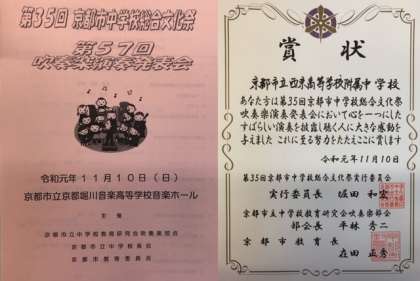 第35回 京都市中学校総合文化祭
第57回
吹奏楽演奏発表会
令和元年11月10日(日)
京都市立京都堀川音楽高等学校音楽ホール
主催
京都市立中学校教育研究会吹奏楽部会
京都市立中学校長会
京都市教育委員会
賞状
京都市立西京高等学校附属中学校
あなた方は第35回京都市中学校総合文化祭
吹奏楽演奏発表会において心を一つにした
すばらしい演奏を披露し聴く人に大きな感動を
与えました これに至る努力をたたえここに賞します
令和元年11月10日
第35回京都市中学校総合文化祭実行委員会
実行委員長 堀田 和宏
京都市立中学校教育研究会吹奏楽部会
部会長 平林 秀二
京都市教育長
在田 正秀